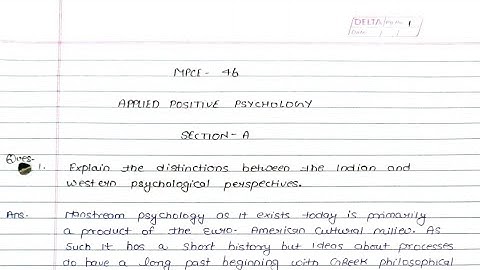 DELTA Pg No. 1
Date / /
MPCE - 46
APPLIED POSITIVE PSYCHOLOGY
SECTION - A
Ques- 1. Explain the distinctions between the Indian and
western psychological perspectives.
Ans. Manstream psychology as it exists today is primarily
a product of the Euro- American Cultural milieu. As
Such it has a short history but Ideas about processes
do have a long past beginning with Greek philosophical